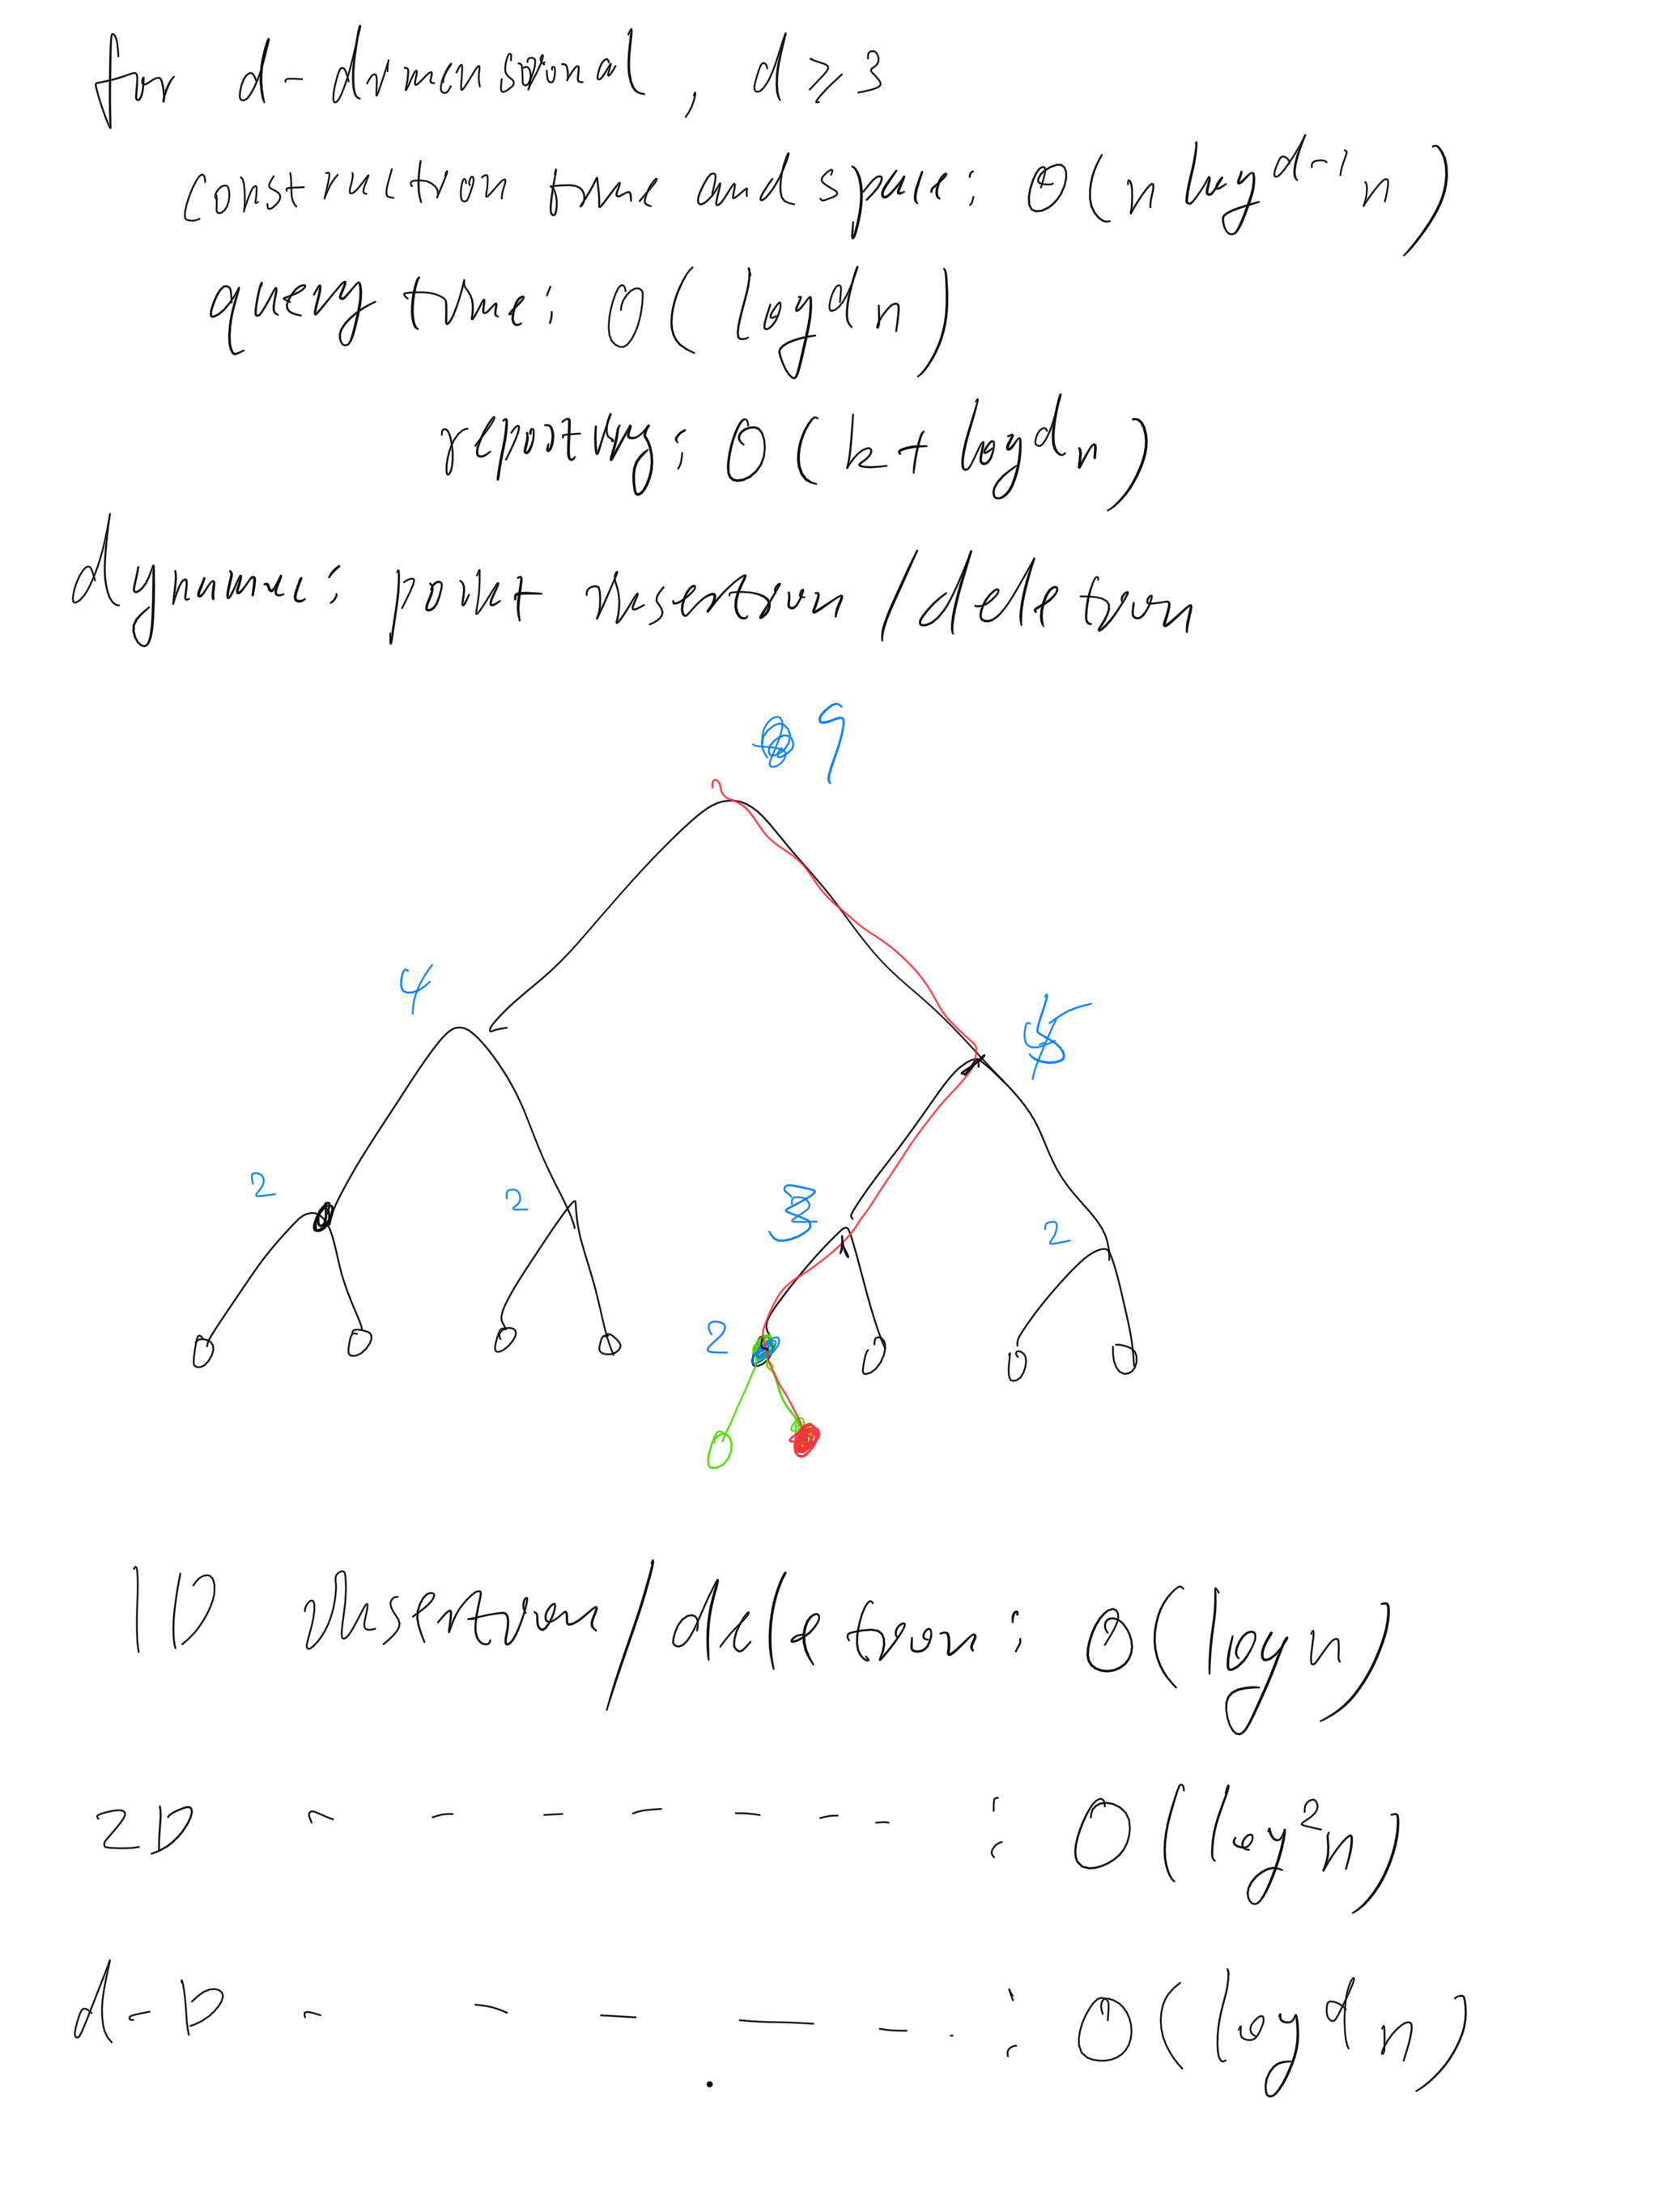 for d-dimensional, d ≥ 3
construction time and space: O(n log^{d-1} n)
query time: O(log^d n)
reporting: O(k + log^d n)
dynamic: point insertion/deletion
9
4
5
2 2 3 2
2
1D insertion/deletion: O(log n)
2D - - - - - - - : O(log^2 n)
d-D - - - - - - : O(log^d n)